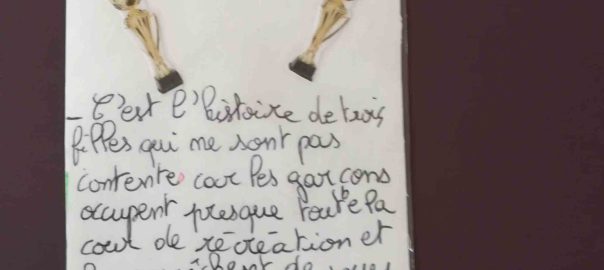 - C'est l'histoire de trois
filles qui ne sont pas
contente car les garçons
occupent presque toute la
cour de récréation et